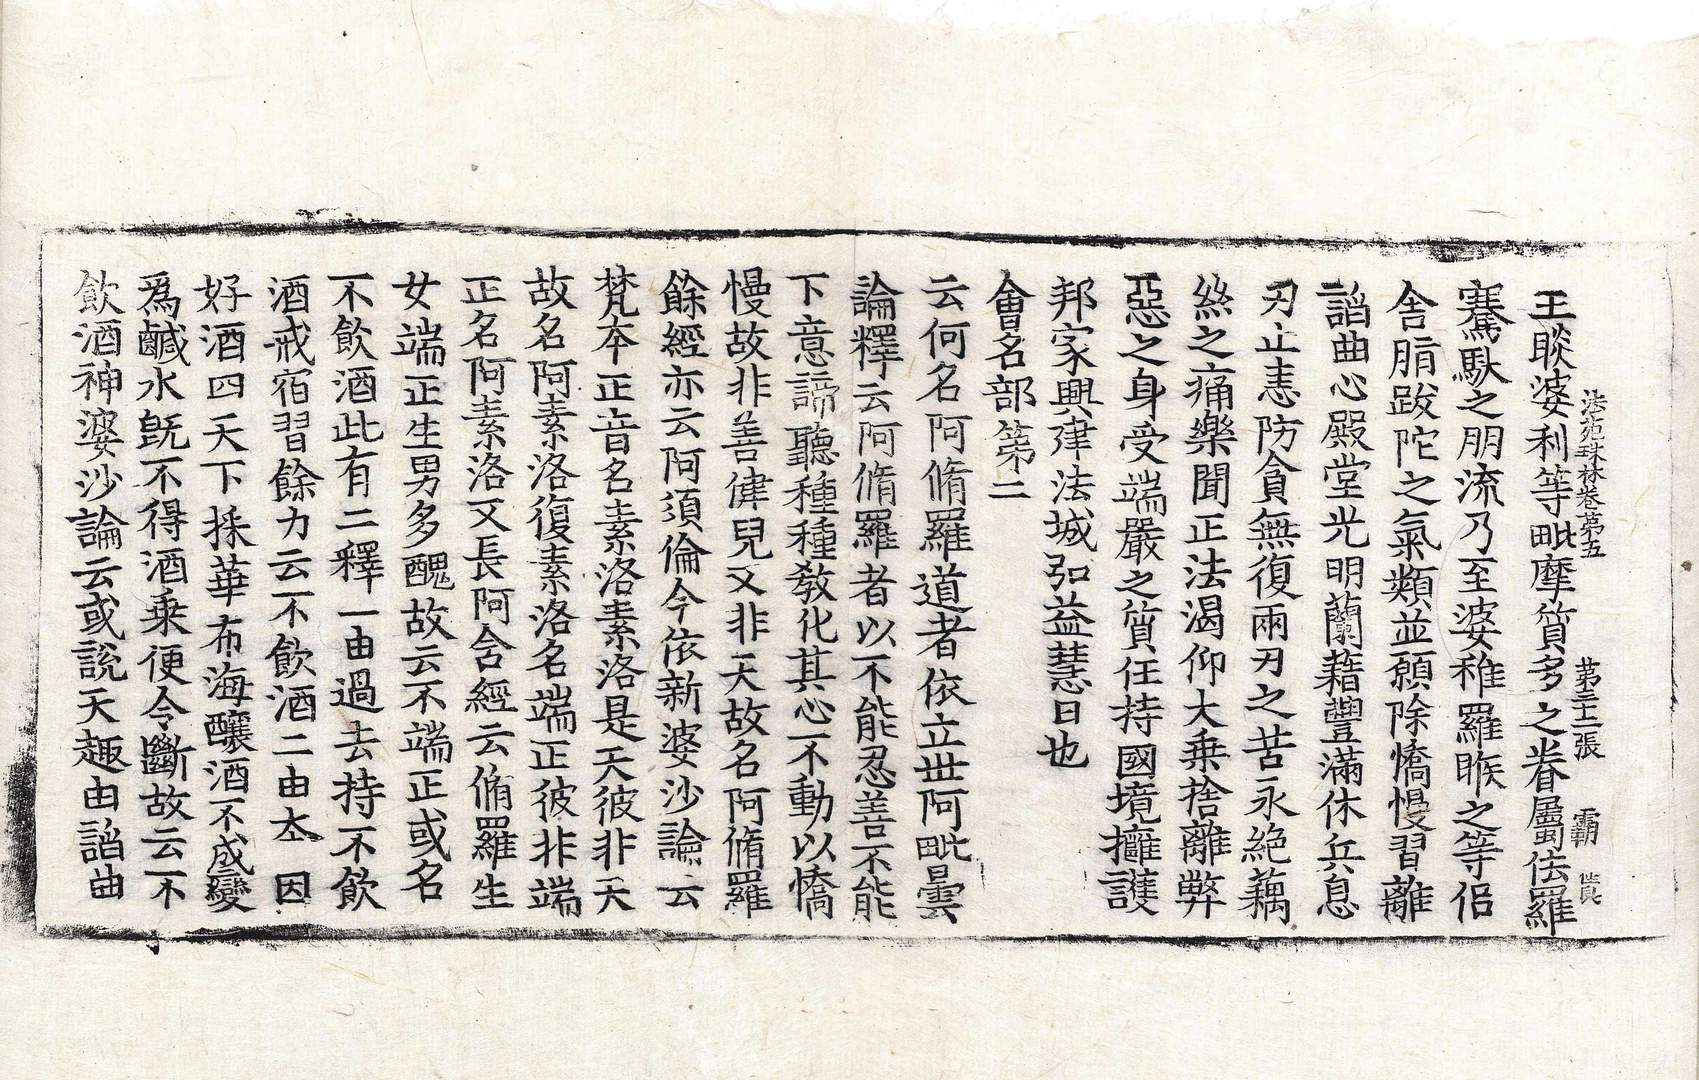 法苑珠林卷第五 第三十二張 覇
王睒婆利等毗摩質多之眷屬佉羅
騫馱之朋流乃至婆稚羅睺之等佀
舍脂跋陀之氣類並願除憍慢習離
諂曲心殿堂光明蘭藉豐滿休兵息
刃止恚防貪無復兩刃之苦永絕藕
絲之痛樂聞正法渴仰大乘捨離弊
惡之身受端嚴之質任持國境擁護
邦家興建法城弘益慧日也
會名部第二
云何名阿脩羅道者依立世阿毗曇
論釋云阿脩羅者以不能忍善不能
下意諦聽種種教化其心不動以憍
慢故非善健兒又非天故名阿脩羅
餘經亦云阿須倫今依新婆沙論云
梵本正音名素洛素洛是天彼非天
故名阿素洛復素洛名端正彼非端
正名阿素洛又長阿含經云脩羅生
女端正生男多醜故云不端正或名
不飲酒此有二釋一由過去持不飲
酒戒宿習餘力云不飲酒二由夲因
好酒四天下採華布海釀酒不成變
爲鹹水旣不得酒乗便令斷故云不
飲酒神婆沙論云或說天趣由諂曲